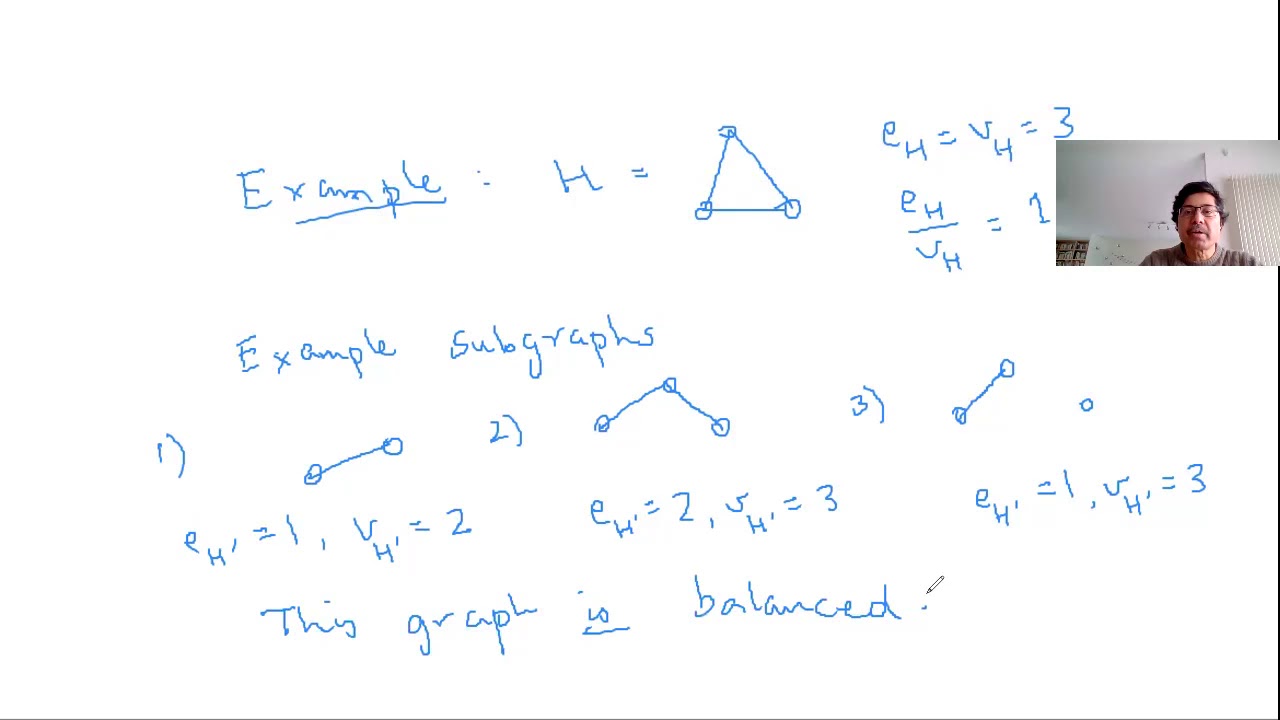 Example : H =
e_H = v_H = 3
e_H / v_H = 1
Example subgraphs
1)
2)
3)
e_H' = 1, v_H' = 2
e_H' = 2, v_H' = 3
e_H' = 1, v_H' = 3
This graph is balanced.